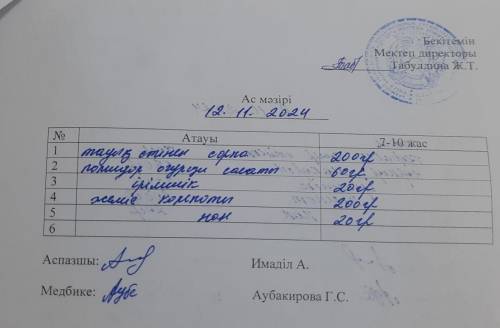 Бекітемін
Мектеп директоры
Табуллина Ж.Т.
Ас мәзірі
12. 11. 2024
№ Атауы 7-10 жас
1 тауық етінен сорпа 200гр
2 помидор огурец салаты 60гр
3 ірімшік 20гр
4 жеміс компоты 200гр
5 нан 20гр
6
Аспазшы: Имаділ А.
Медбике: Аубакирова Г.С.